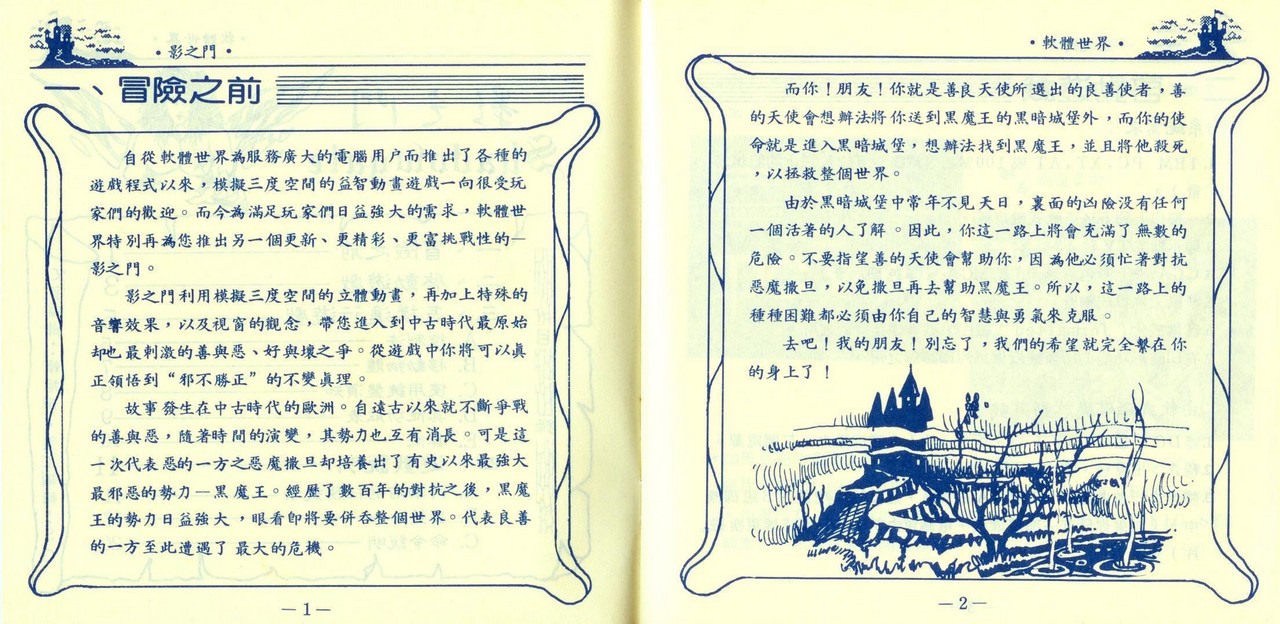 •影之門•
一、冒險之前
自從軟體世界為服務廣大的電腦用戶而推出了各種的
遊戲程式以來，模擬三度空間的益智動畫遊戲一向很受玩
家們的歡迎。而今為滿足玩家們日益強大的需求，軟體世
界特別再為您推出另一個更新、更精彩、更富挑戰性的—
影之門。
影之門利用模擬三度空間的立體動畫，再加上特殊的
音響效果，以及視窗的觀念，帶您進入到中古時代最原始
却也最刺激的善與惡、好與壞之爭。從遊戲中你將可以眞
正領悟到“邪不勝正”的不變眞理。
故事發生在中古時代的歐洲。自遠古以來就不斷爭戰
的善與惡，隨著時間的演變，其勢力也互有消長。可是這
一次代表惡的一方之惡魔撒旦却培養出了有史以來最強大
最邪惡的勢力—黑魔王。經歷了數百年的對抗之後，黑魔
王的勢力日益強大，眼看卽將要併吞整個世界。代表良善
的一方至此遭遇了最大的危機。
—1—
•軟體世界•
而你！朋友！你就是善良天使所選出的良善使者，善
的天使會想辦法將你送到黑魔王的黑暗城堡外，而你的使
命就是進入黑暗城堡，想辦法找到黑魔王，並且將他殺死
，以拯救整個世界。
由於黑暗城堡中常年不見天日，裏面的凶險沒有任何
一個活著的人了解。因此，你這一路上將會充滿了無數的
危險。不要指望善的天使會幫助你，因為他必須忙著對抗
惡魔撒旦，以免撒旦再去幫助黑魔王。所以，這一路上的
種種困難都必須由你自己的智慧與勇氣來克服。
去吧！我的朋友！別忘了，我們的希望就完全繫在你
的身上了！
—2—